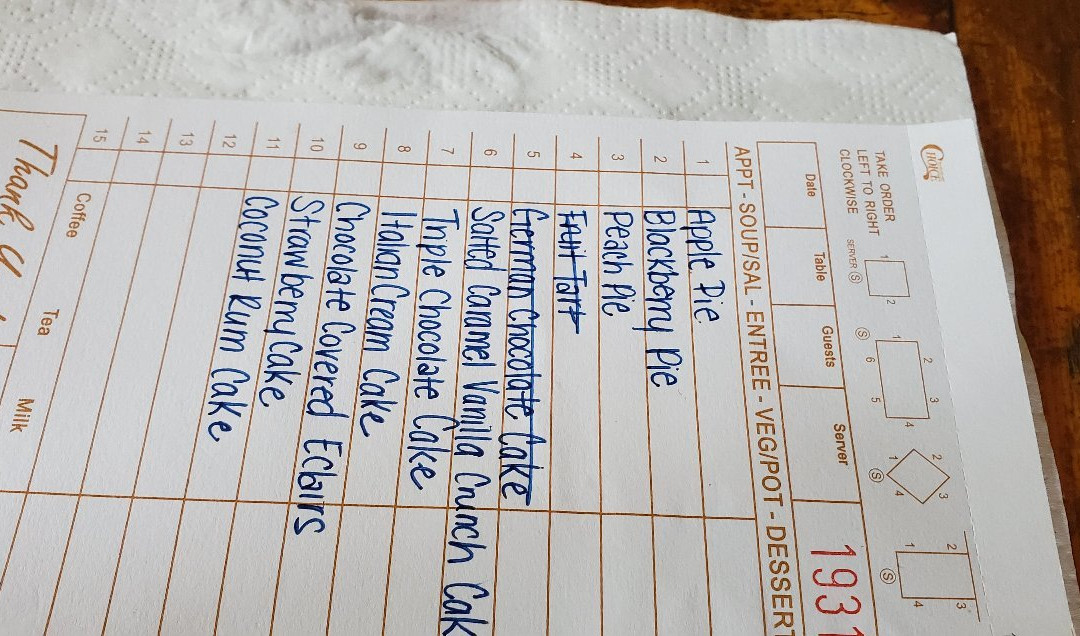 CHOICE
TAKE ORDER
LEFT TO RIGHT
CLOCKWISE
SERVER Ⓢ
1 2
Ⓢ 1 2 3 4 5 6
Ⓢ 1 2 3 4
Ⓢ 1 2 3 4
Date Table Guests Server 1931
APPT - SOUP/SAL - ENTREE - VEG/POT - DESSERT
1 Apple Pie
2 Blackberry Pie
3 Peach Pie
4 Fruit Tart
5 German Chocolate Cake
6 Salted Caramel Vanilla Crunch Cak
7 Triple Chocolate Cake
8 Italian Cream Cake
9 Chocolate Covered Eclairs
10 Strawberry Cake
11 Coconut Rum Cake
12
13
14
15
Coffee Tea Milk
Thank